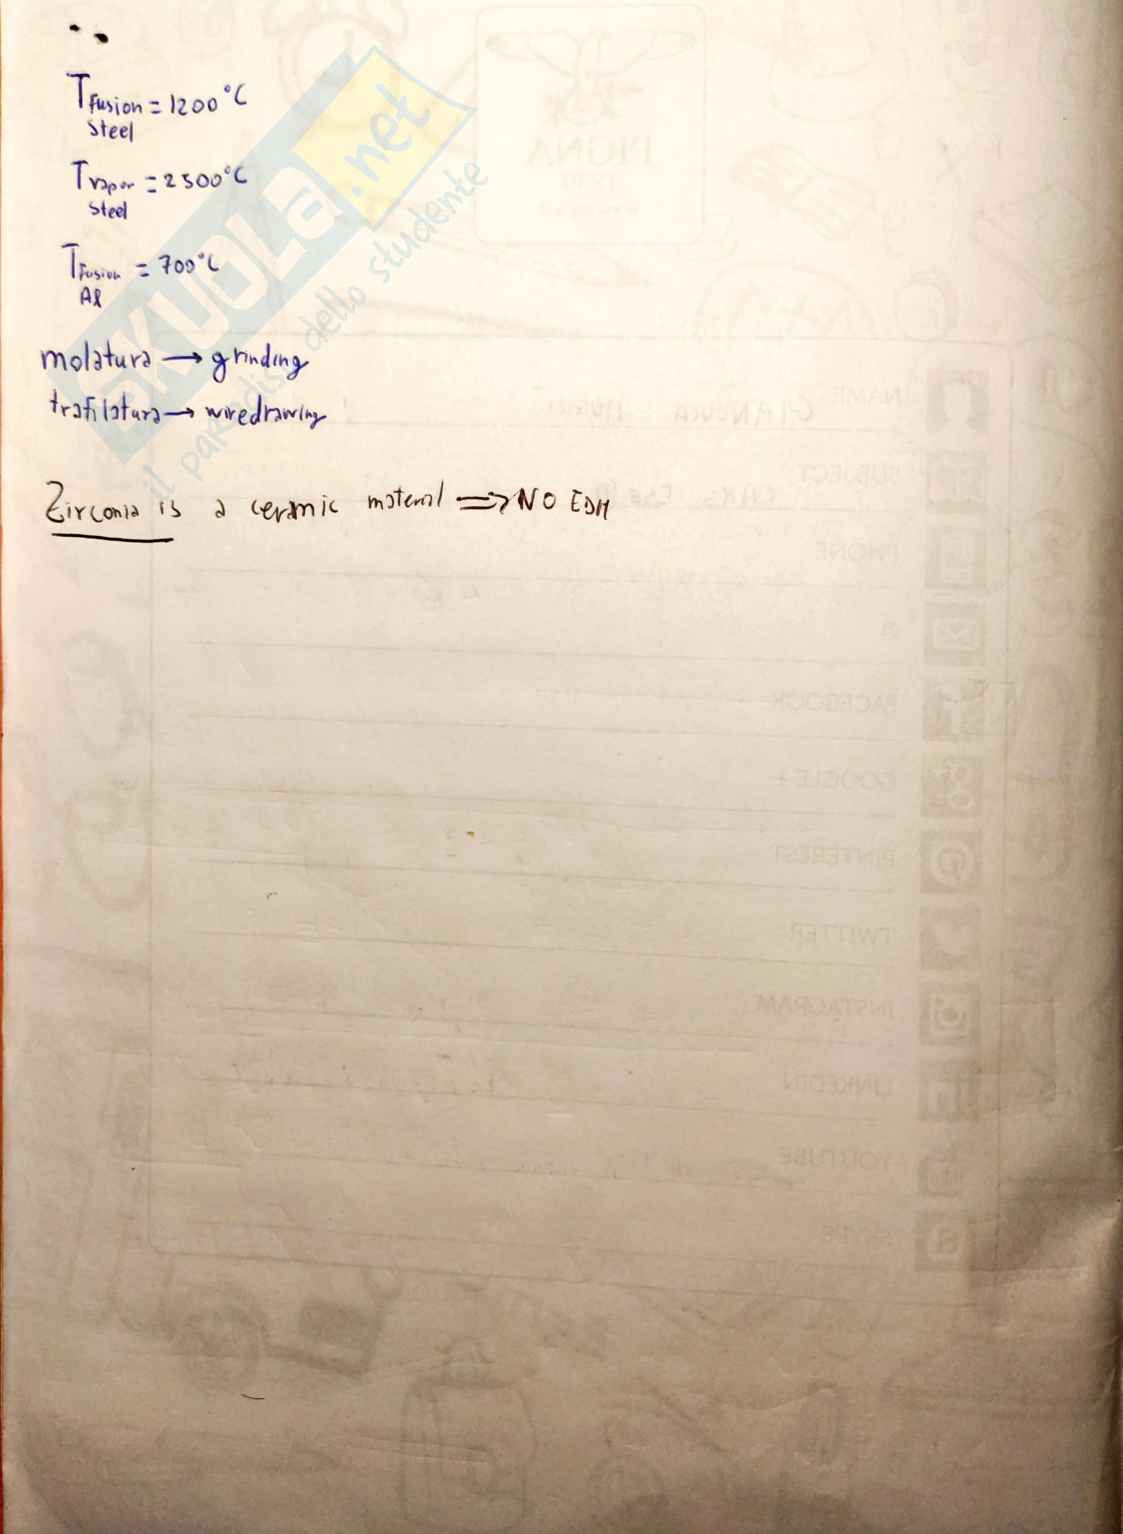 T Fusion = 1200 °C
Steel
T vapor = 2500 °C
Steel
T Fusion = 700 °C
Al
molatura → grinding
trafilatura → wiredrawing
Zirconia is a ceramic material ⇒ NO EDM
SKUOLA.net
il paradiso dello studente
PIGNA
NAME
SUBJECT
PHONE
@
FACEBOOK
GOOGLE+
PINTEREST
TWITTER
INSTAGRAM
LINKEDIN
YOUTUBE
SKYPE